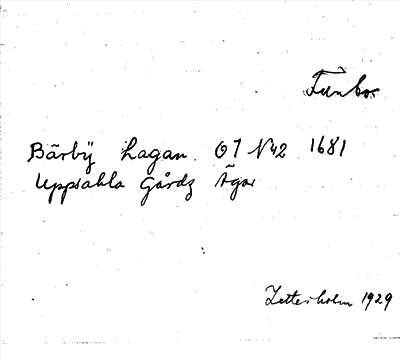 Funbo
Bärbÿ hagan O7 N42 1681
Uppsahla Gårdz Ägor
Zetterholm 1929